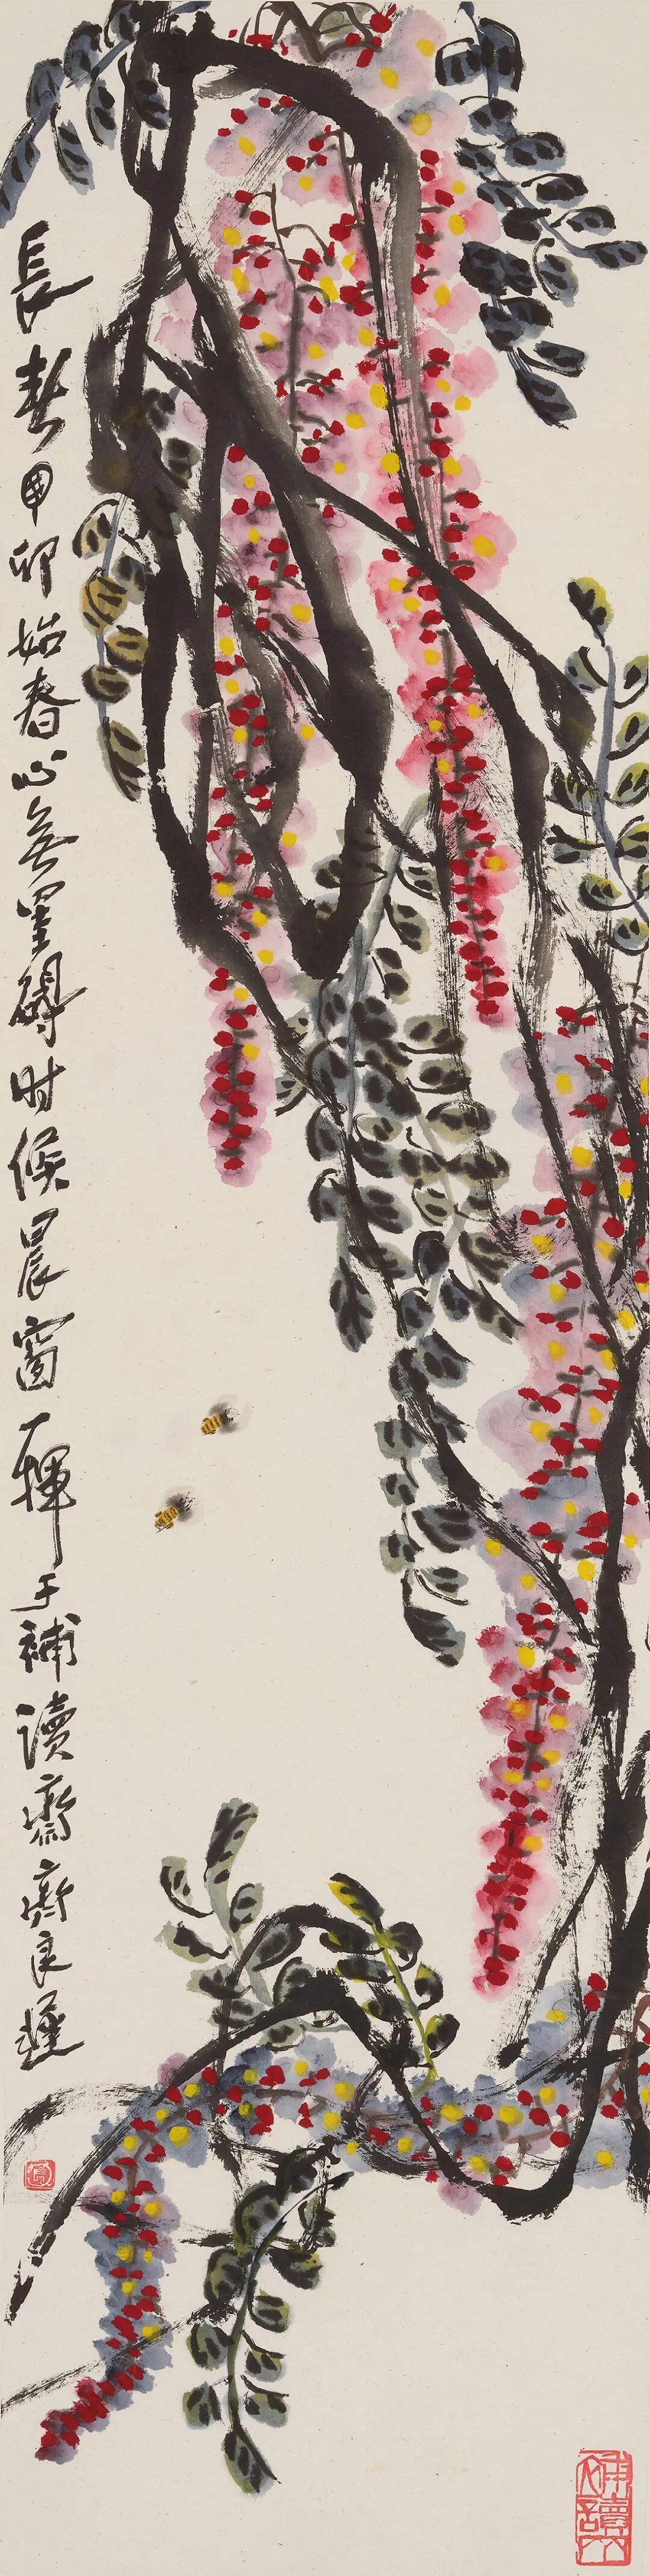 長 卯始春心無罣礙時候晨窗一揮于補讀齋齊良遲